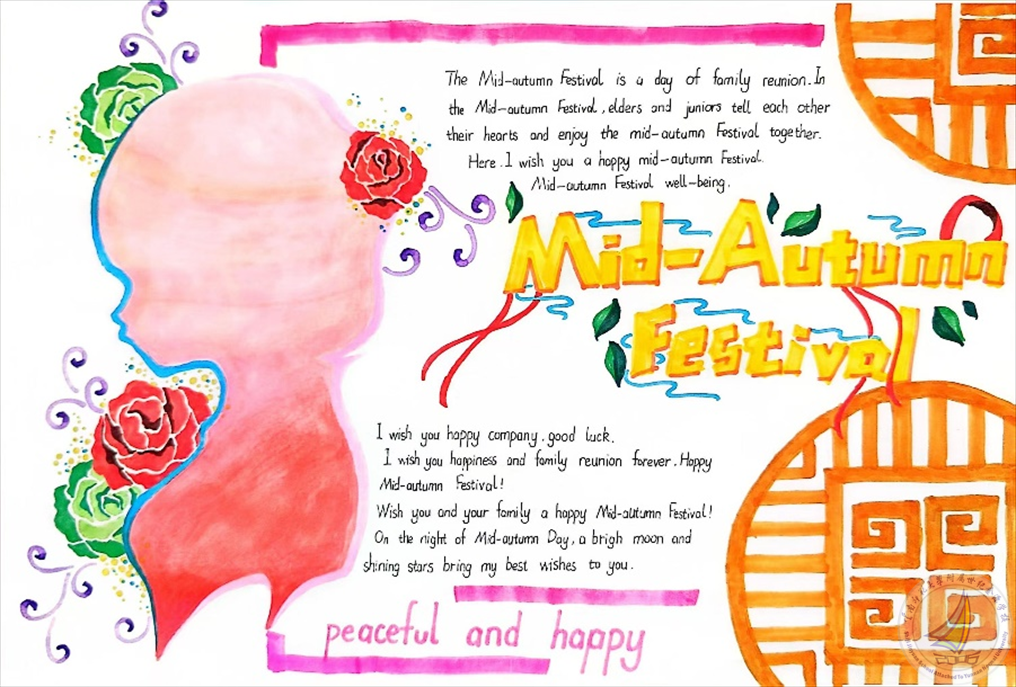 The Mid-autumn Festival is a day of family reunion. In
the Mid-autumn Festival, elders and juniors tell each other
their hearts and enjoy the mid-autumn Festival together.
Here. I wish you a happy mid-autumn Festival.
Mid-autumn Festival well-being.
Mid-Autumn
Festival
I wish you happy company, good luck.
I wish you happiness and family reunion forever. Happy
Mid-autumn Festival!
Wish you and your family a happy Mid-autumn Festival!
On the night of Mid-autumn Day, a brigh moon and
shining stars bring my best wishes to you.
peaceful and happy